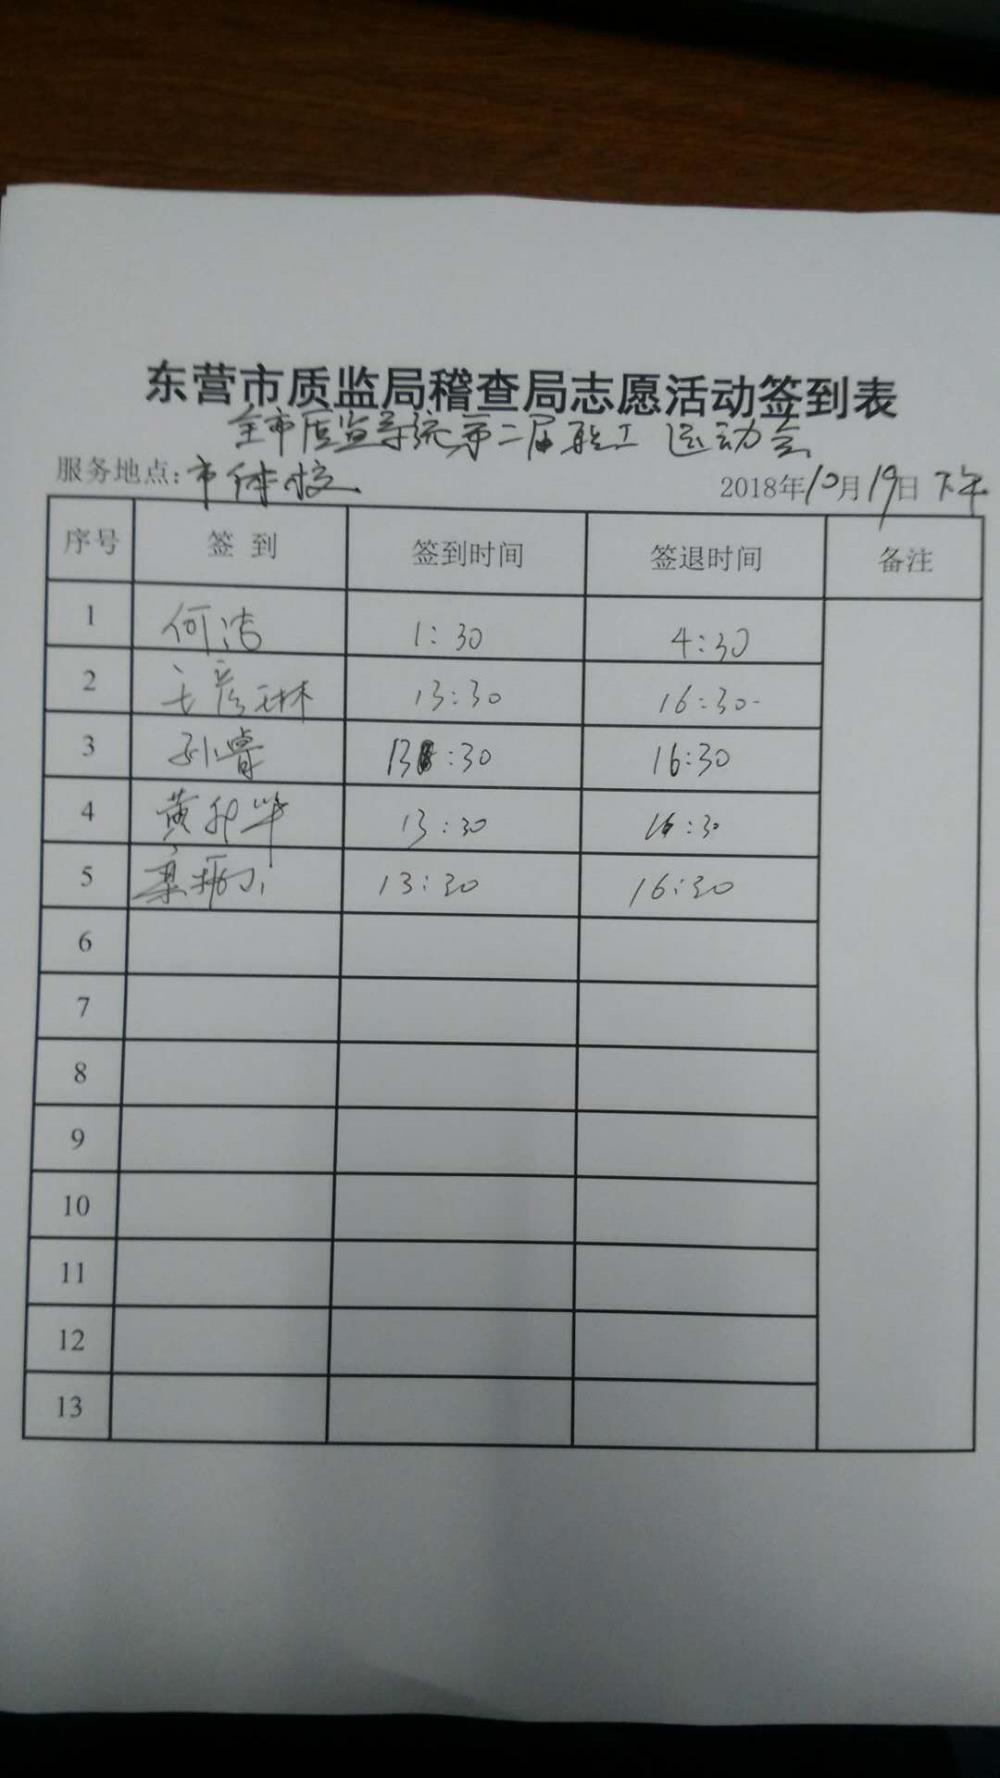 东营市质监局稽查局志愿活动签到表
全市质监系统第二届职工运动会
服务地点:市体校 2018年10月19日 下午
序号 签 到 签到时间 签退时间 备注
1 何洁 1:30 4:30
2 彦琳 13:30 16:30
3 孙睿 13:30 16:30
4 黄 13:30 16:30
5 13:30 16:30
6
7
8
9
10
11
12
13